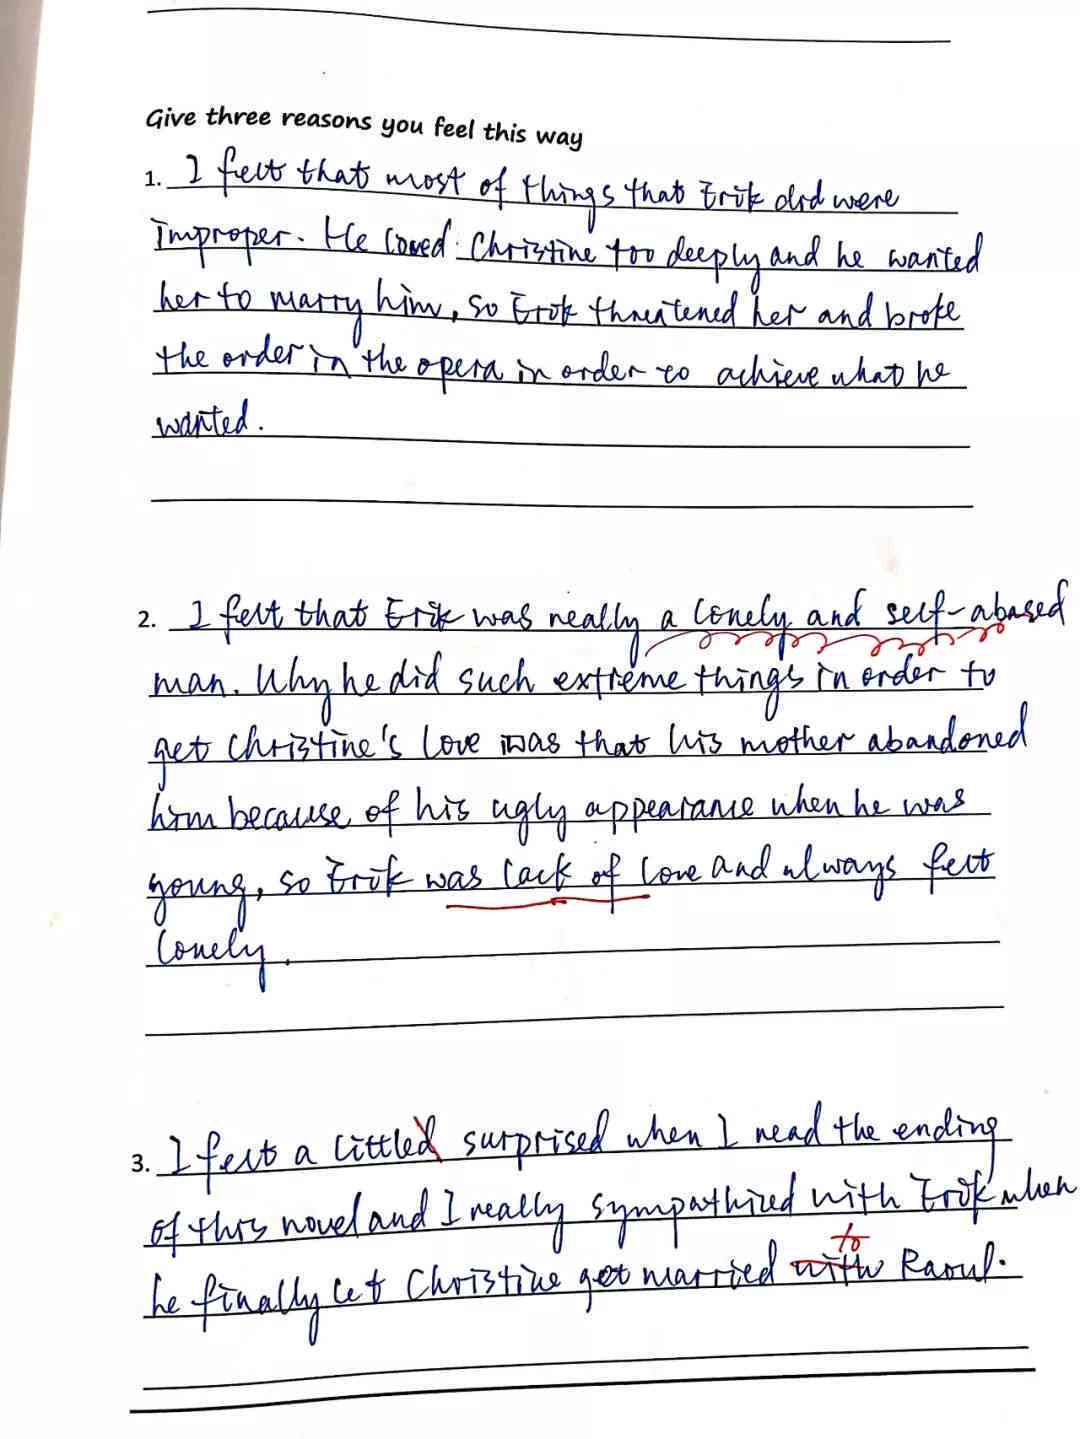 Give three reasons you feel this way
1. I felt that most of things that Erik did were
improper. He loved Christine too deeply and he wanted
her to marry him, so Erik threatened her and broke
the order in the opera in order to achieve what he
wanted.
2. I felt that Erik was really a lonely and self-abased
man. Why he did such extreme things in order to
get Christine's love was that his mother abandoned
him because of his ugly appearance when he was
young, so Erik was lack of love and always felt
lonely.
3. I felt a littled surprised when I read the ending
of this novel and I really sympathized with Erik when
to
he finally let Christine get married with Raoul.